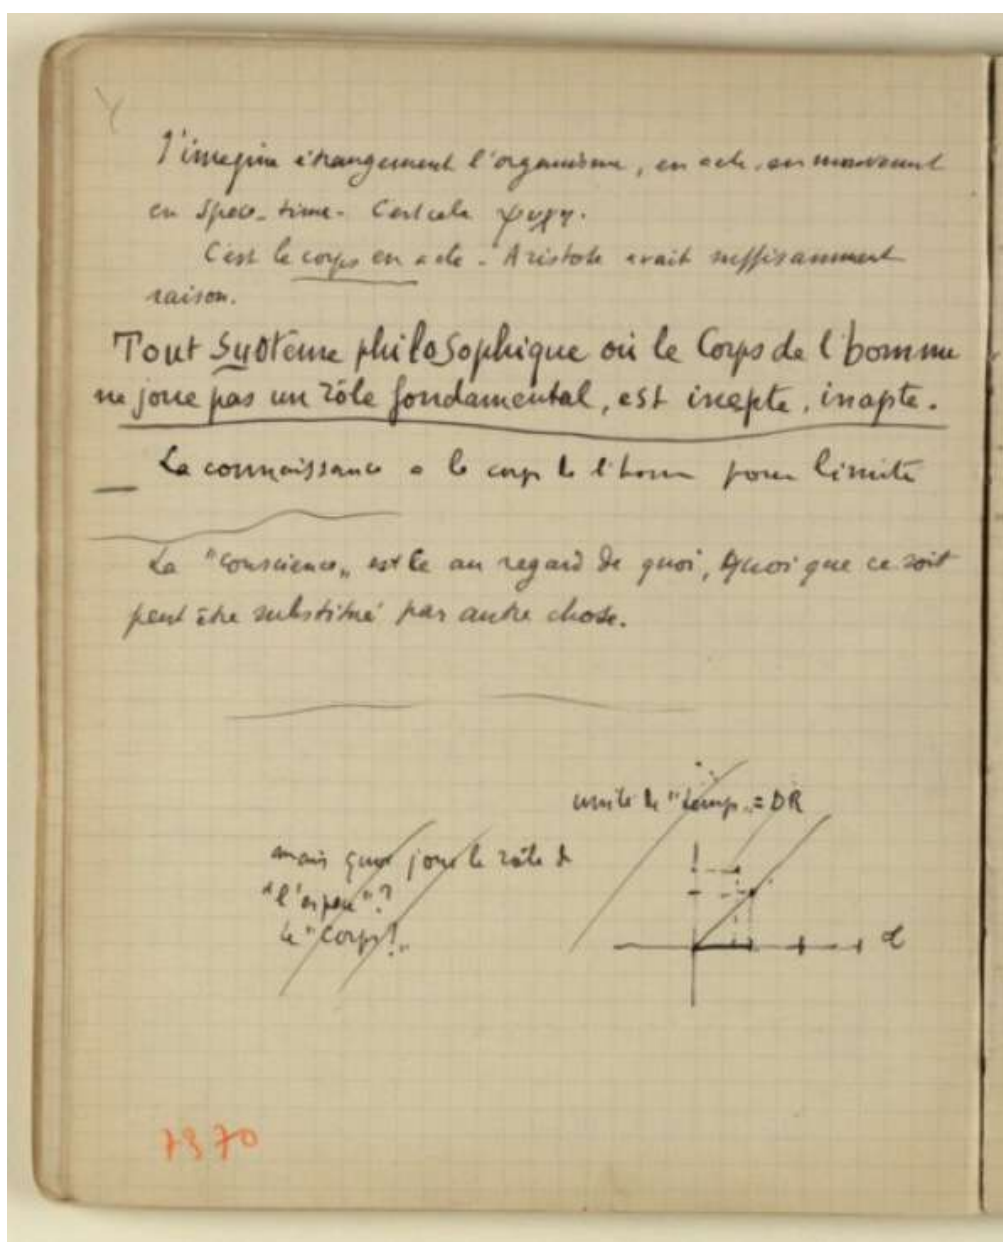 J'imagine étrangement l'organisme, en acte, en mouvement
en Space-time - C'est cela ψυχη.
C'est le corps en acte - Aristote avait suffisamment
raison.
Tout Système philosophique où le Corps de l'homme
ne joue pas un rôle fondamental, est inepte, inapte.
La connaissance a le corps de l'homme pour limite
La "conscience„ est le au regard de quoi, Quoi que ce soit
peut être substitué par autre chose.
unité de "temps„ = DR
mais quoi joue le rôle de
"l'espace"?
le "Corps!„
7370